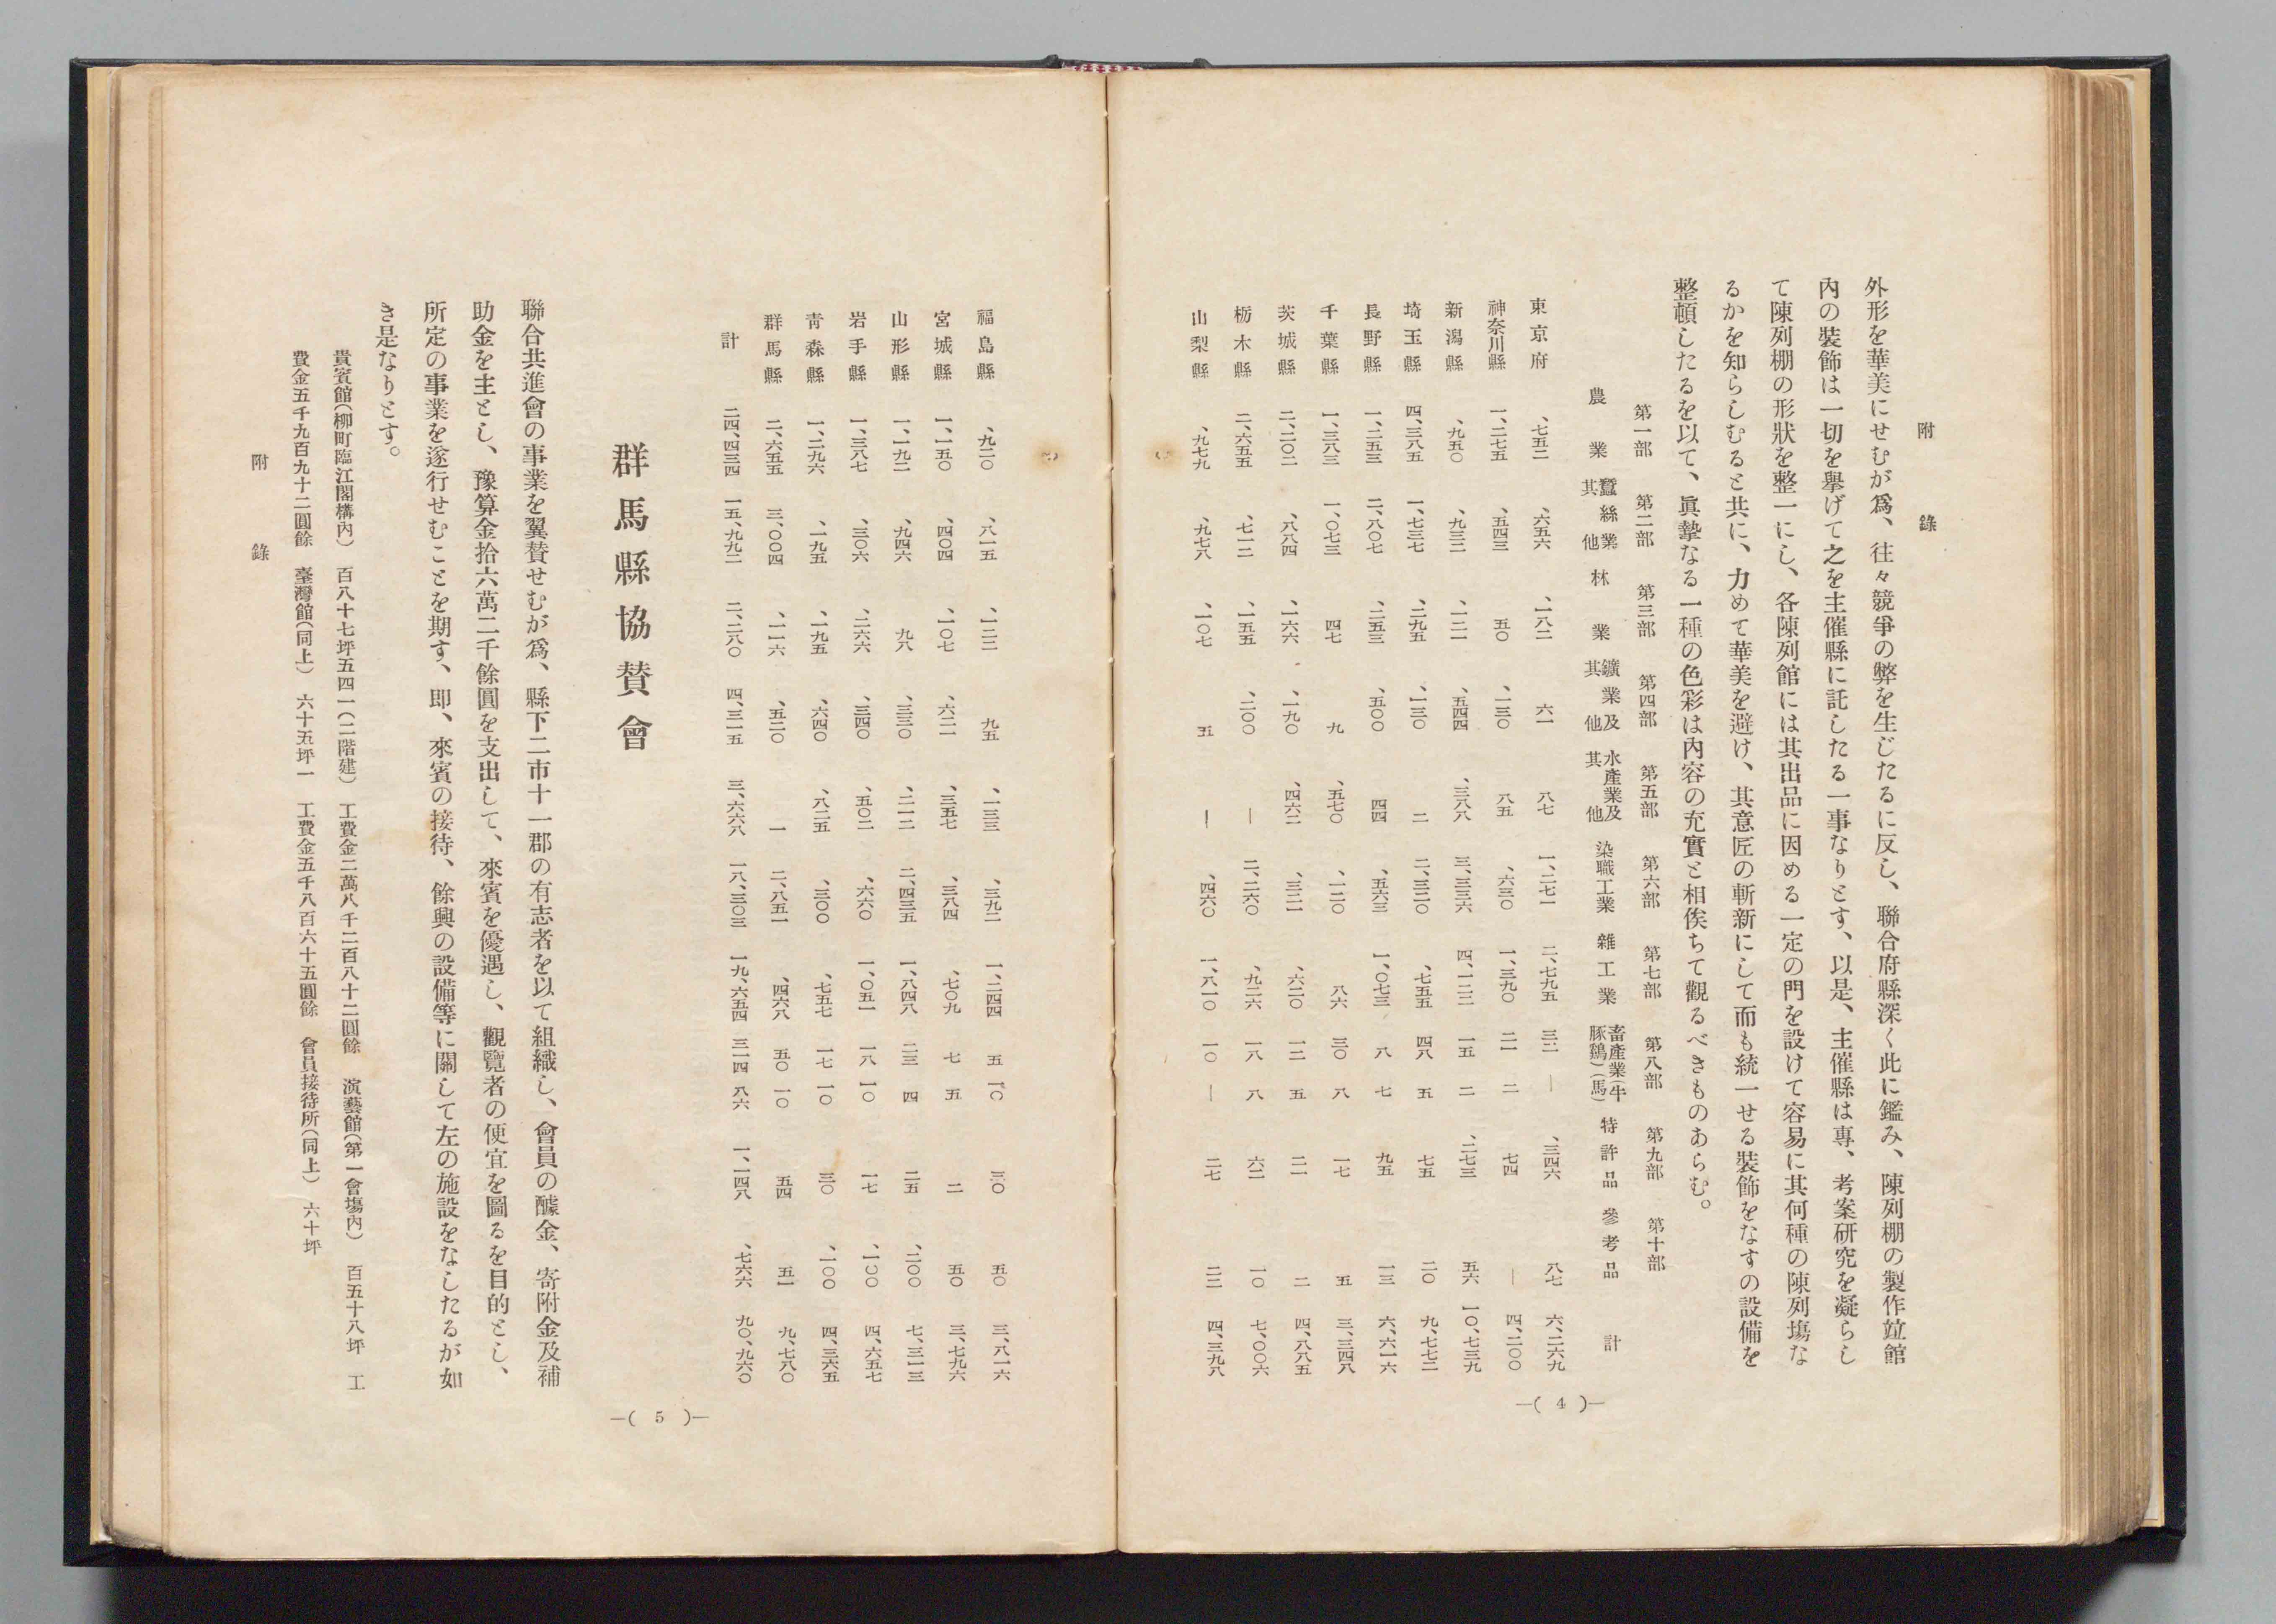 附錄
外形を華美にせむが爲、往々競爭の弊を生じたるに反し、聯合府縣深く此に鑑み、陳列棚の製作竝館
內の裝飾は一切を擧げて之を主催縣に託したる一事なりとす、以是、主催縣は專、考案研究を凝らし
て陳列棚の形狀を整一にし、各陳列館には其出品に因める一定の門を設けて容易に其何種の陳列塲な
るかを知らしむると共に、力めて華美を避け、其意匠の斬新にして而も統一せる裝飾をなすの設備を
整頓したるを以て、眞摯なる一種の色彩は內容の充實と相俟ちて觀るべきものあらむ。
第一部 第二部 第三部 第四部 第五部 第六部 第七部 第八部 第九部 第十部
農業 蠶絲業其他 林業 鑛業及其他 水產業及其他 染職工業 雜工業 畜產業(牛豚鷄)(馬) 特許品 參考品 計
東京府 、七五二 、六五六 、一八二 六一 八七 一、二七一 二、七九五 三二 — 、三四六 八七 六、二六九
神奈川縣 一、二七五 、五四三 五〇 、一三〇 八五 、六三〇 一、三九〇 二一 二 七四 — 四、二〇〇
新潟縣 、九五〇 、九三二 、一二一 、五四四 、三八八 三、三三六 四、一二二 一五 二 、二七三 五六 一〇、七三九
埼玉縣 四、三八五 一、七三七 、二九五 、一三〇 二 二、三二〇 、七五五 四八 五 七五 二〇 九、七七二
長野縣 一、二五三 二、八〇七 、二五三 、五〇〇 四四 、五六三 一、〇七三 八 七 九五 一三 六、六一六
千葉縣 一、三八三 一、〇七三 四七 九 、五七〇 、一二〇 八六 三〇 八 一七 五 三、三四八
茨城縣 二、二〇二 、八八四 、一六六 、一九〇 、四六二 、三二一 、六二〇 一二 五 二一 二 四、八八五
栃木縣 二、六五五 、七一二 、一五五 、二〇〇 — 二、二六〇 、九二六 一八 八 六二 一〇 七、〇〇六
山梨縣 、九七九 、九七八 、一〇七 五 — 、四六〇 一、八一〇 一〇 — 二七 二二 四、三九八
—( 4 )—
福島縣 、九二〇 、八一五 、一二二 九五 、一三三 、三九二 一、二四四 五 一〇 三〇 五〇 三、八一六
宮城縣 一、一五〇 、四〇四 、一〇七 、六二一 、三五七 、三八四 、七〇九 七 五 二 五〇 三、七九六
山形縣 一、一九二 、九四六 九八 、三三〇 、二一二 二、四三五 一、八四八 二三 四 二五 、二〇〇 七、三一三
岩手縣 一、三八七 、三〇六 、二六六 、三四〇 、五〇二 、六六〇 一、〇五一 一八 一〇 一七 、一〇〇 四、六五七
靑森縣 一、二九六 、一九五 、一九五 、六四〇 、八二五 、三〇〇 、七五七 一七 一〇 三〇 、一〇〇 四、三六五
群馬縣 二、六五五 三、〇〇四 、一一六 、五二〇 一 二、八五一 、四六八 五〇 一〇 五四 五一 九、七八〇
計 二四、四三四 一五、九九二 二、二八〇 四、三一五 三、六六八 一八、三〇三 一九、六五四 三一四 八六 一、一四八 、七六六 九〇、九六〇
群馬縣協贊會
聯合共進會の事業を翼贊せむが爲、縣下二市十一郡の有志者を以て組織し、會員の醵金、寄附金及補
助金を主とし、豫算金拾六萬二千餘圓を支出して、來賓を優遇し、觀覽者の便宜を圖るを目的とし、
所定の事業を遂行せむことを期す、卽、來賓の接待、餘興の設備等に關して左の施設をなしたるが如
き是なりとす。
貴賓館(柳町臨江閣構內) 百八十七坪五四一(二階建) 工費金二萬八千二百八十二圓餘 演藝館(第一會塲內) 百五十八坪 工
費金五千九百九十二圓餘 臺灣館(同上) 六十五坪一 工費金五千八百六十五圓餘 會員接待所(同上) 六十坪
附錄
—( 5 )—